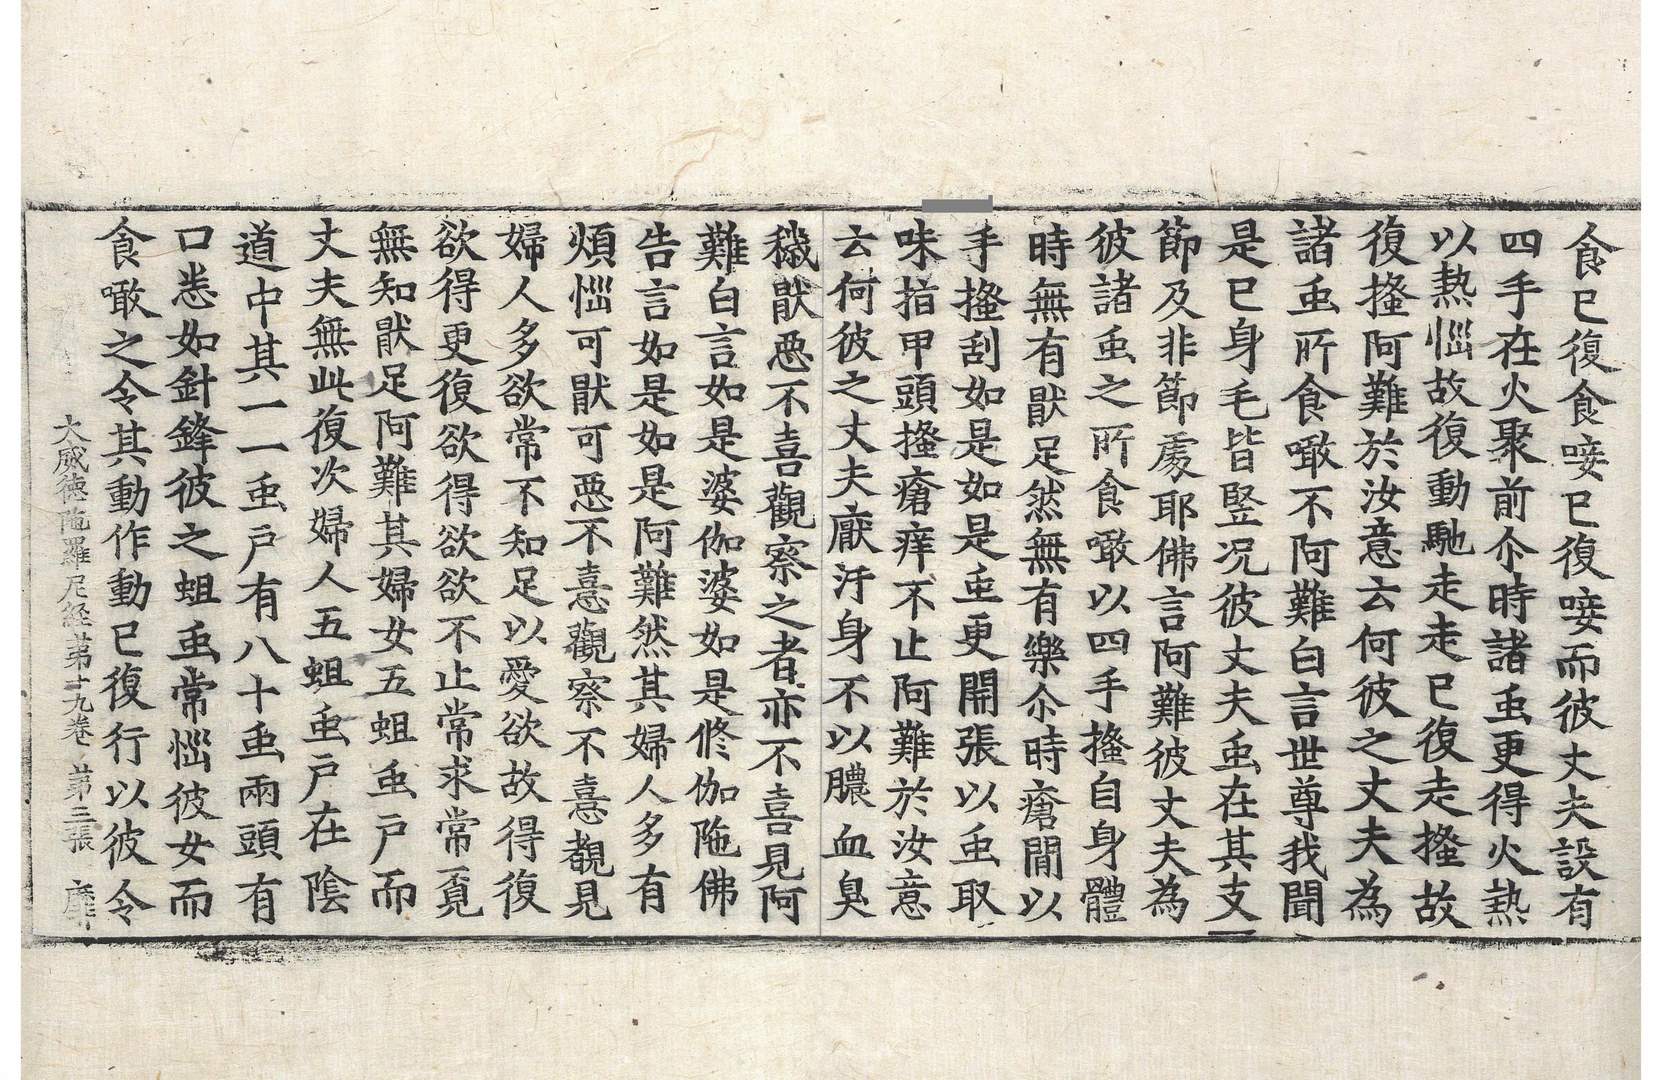 食已復食唼已復唼而彼丈夫設有
四手在火聚前尒時諸䖝更得火熱
以熱惱故復動馳走走已復走搔故
復搔阿難於汝意云何彼之丈夫為
諸䖝所食噉不阿難白言世尊我聞
是已身毛皆竪况彼丈夫䖝在其支
節及非節處耶佛言阿難彼丈夫為
彼諸䖝之所食噉以四手搔自身體
時無有猒足然無有樂尒時瘡間以
手搔刮如是如是䖝更開張以䖝取
味指甲頭搔瘡痒不止阿難於汝意
云何彼之丈夫廄汙身不以膿血臭
穢猒惡不喜觀察之者亦不喜見阿
難白言如是婆伽婆如是修伽陁佛
告言如是如是阿難然其婦人多有
煩惱可猒可惡不憙觀察不憙覩見
婦人多欲常不知足以愛欲故得復
欲得更復欲得欲欲不止常求常覓
無知猒足阿難其婦女五蛆䖝戸而
丈夫無此復次婦人五蛆䖝戸在陰
道中其一一䖝戸有八十䖝兩頭有
口悉如針鋒彼之蛆䖝常惱彼女而
食噉之令其動作動已復行以彼令
大威德陁羅尼經第十九卷 第三張 靡